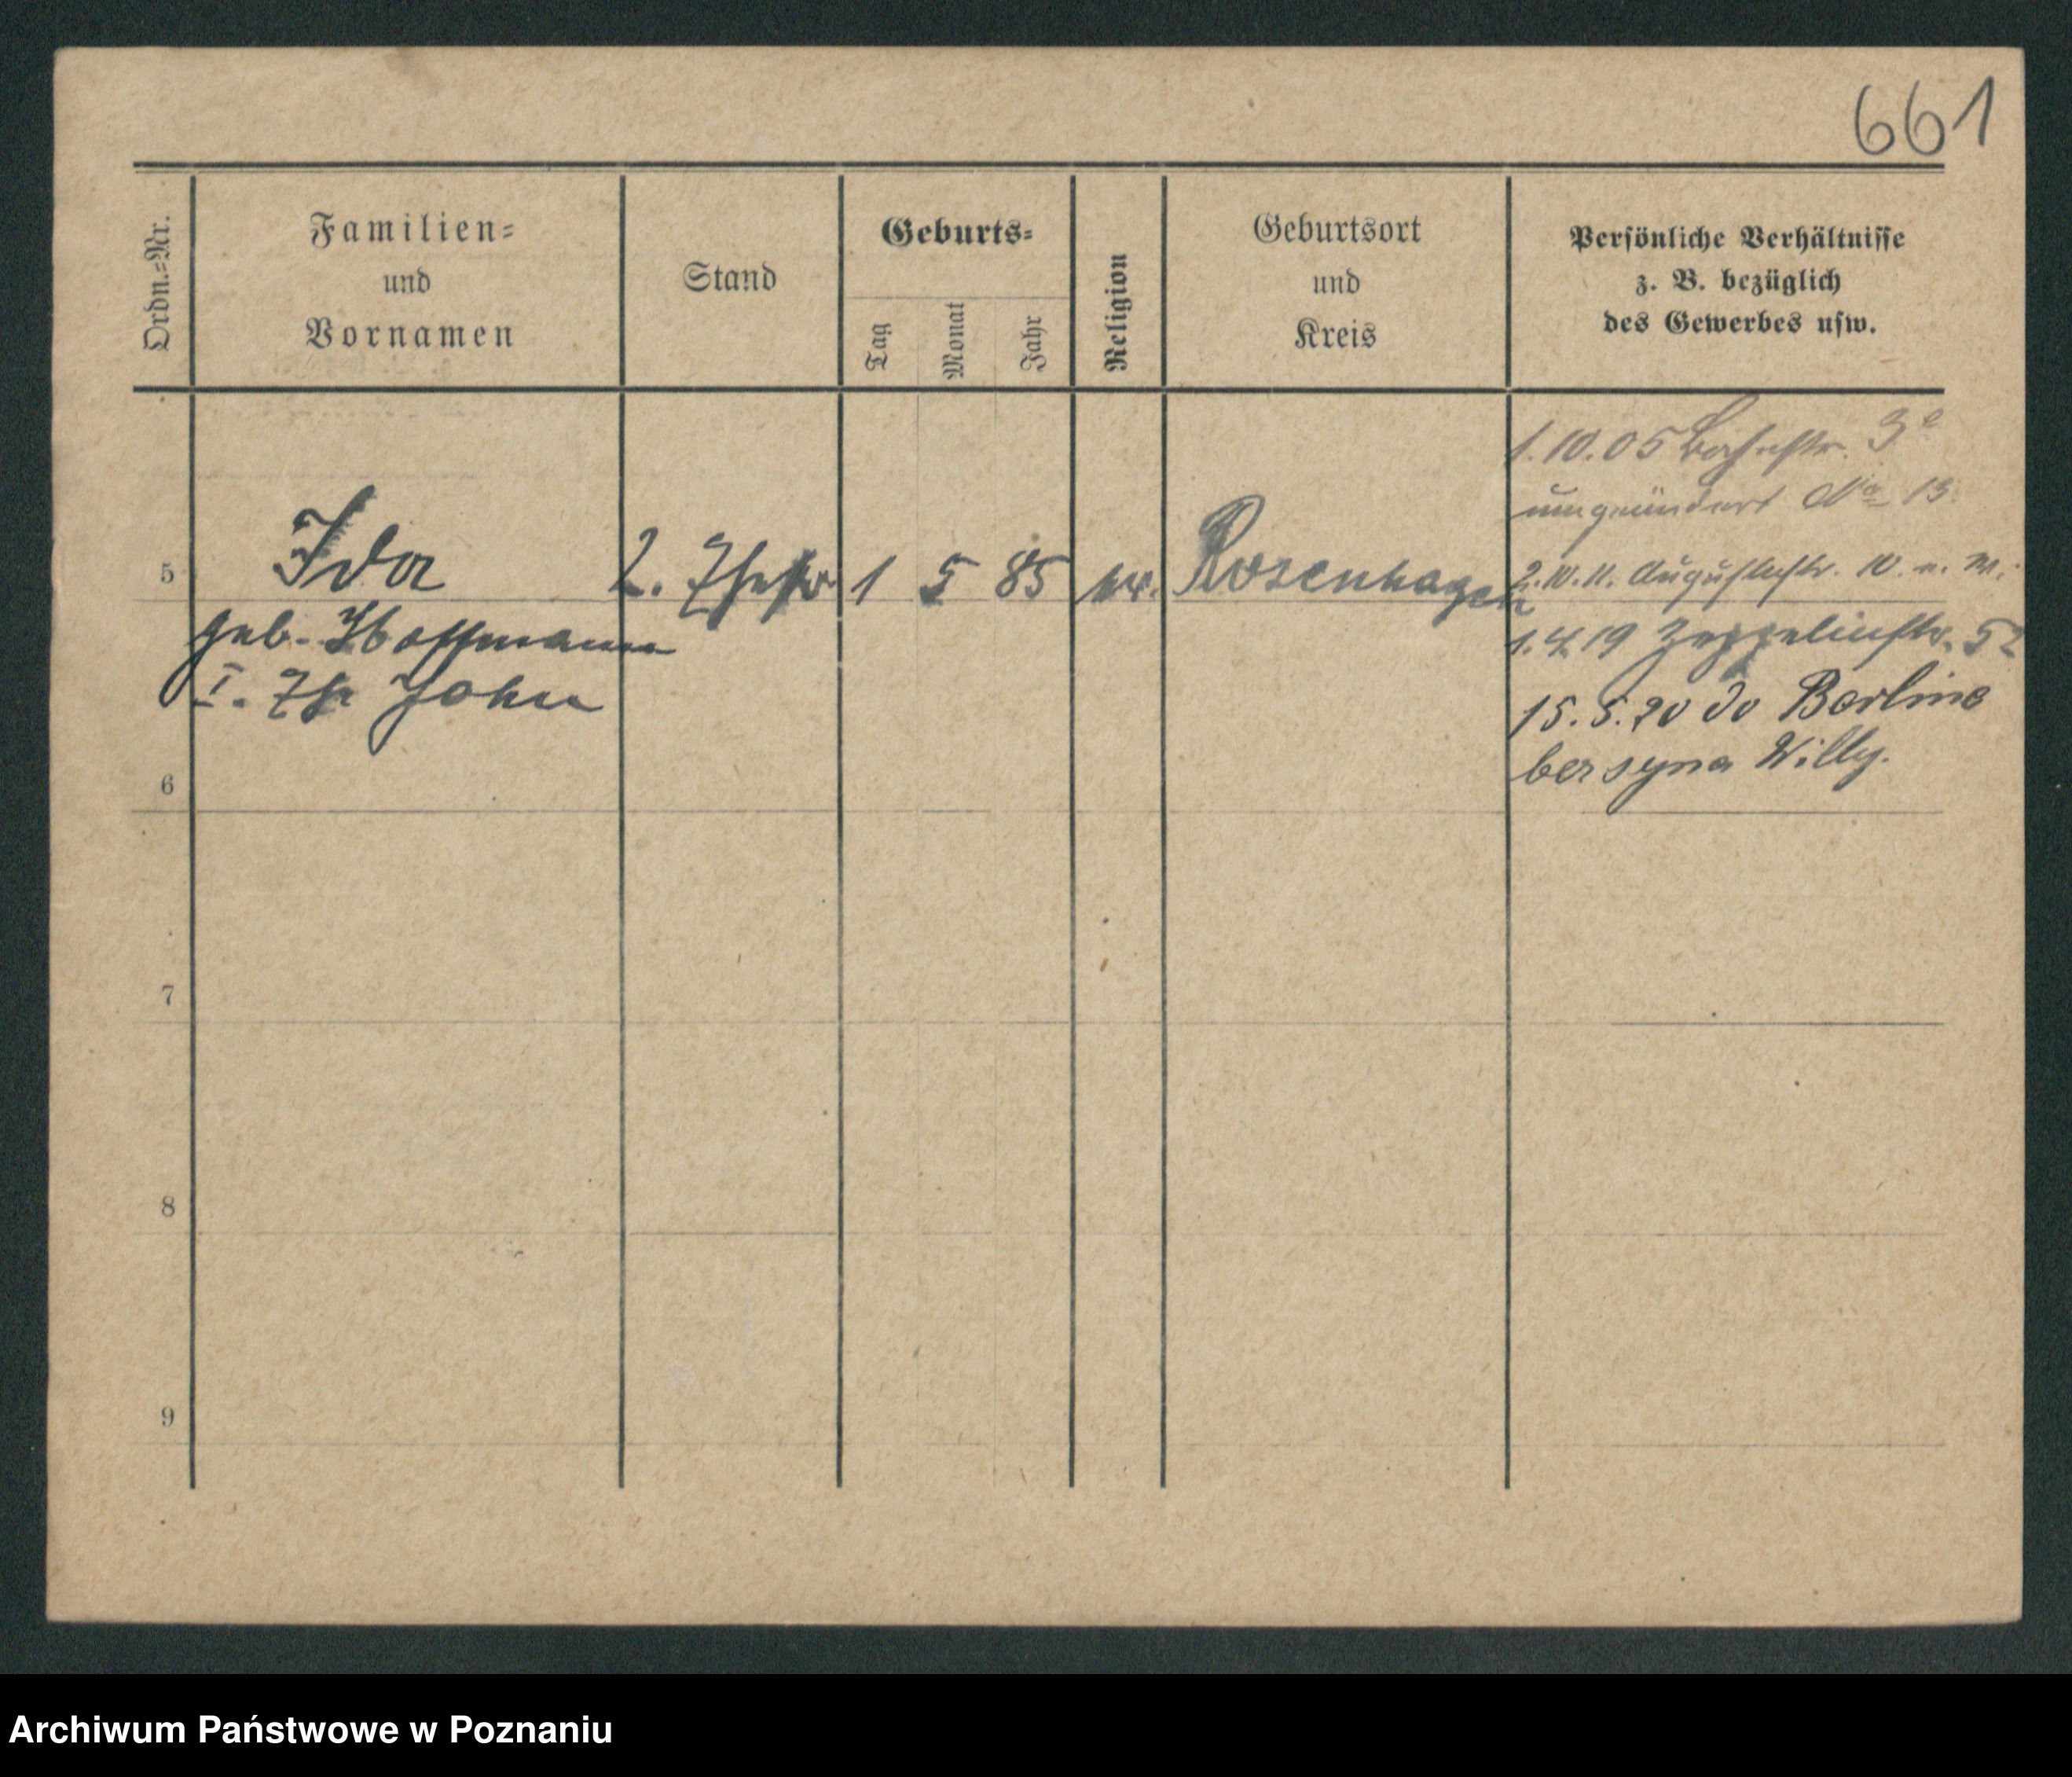 661
Ordn.-Nr.
Familien-
und
Vornamen
Stand
Geburts-
Tag
Monat
Jahr
Religion
Geburtsort
und
Kreis
Persönliche Verhältnisse
z. B. bezüglich
des Gewerbes usw.
1.10.05 Bahnstr. 3
umgeändert No 13.
5 Ida 2. Ehefr 1 5 85 ev. Rosenhagen
2.10.11. Augustastr. 10.
geb. Hoffmann
1.4.19 Zeppelinstr. 52
I. Ehe John
15.5.20 do Berlina
ber syna Willy.
6
7
8
9
Archiwum Państwowe w Poznaniu